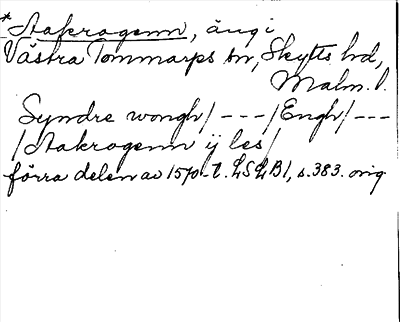 * Stakrogenn, äng i
Västra Tommarps sn, Skytts hd,
Malm. l.
Syndre wongh/ - - - /Engh/ - - -
/Stakrogenn ij les/
förra delen av 1570-t. LSLB1, s. 383. orig.